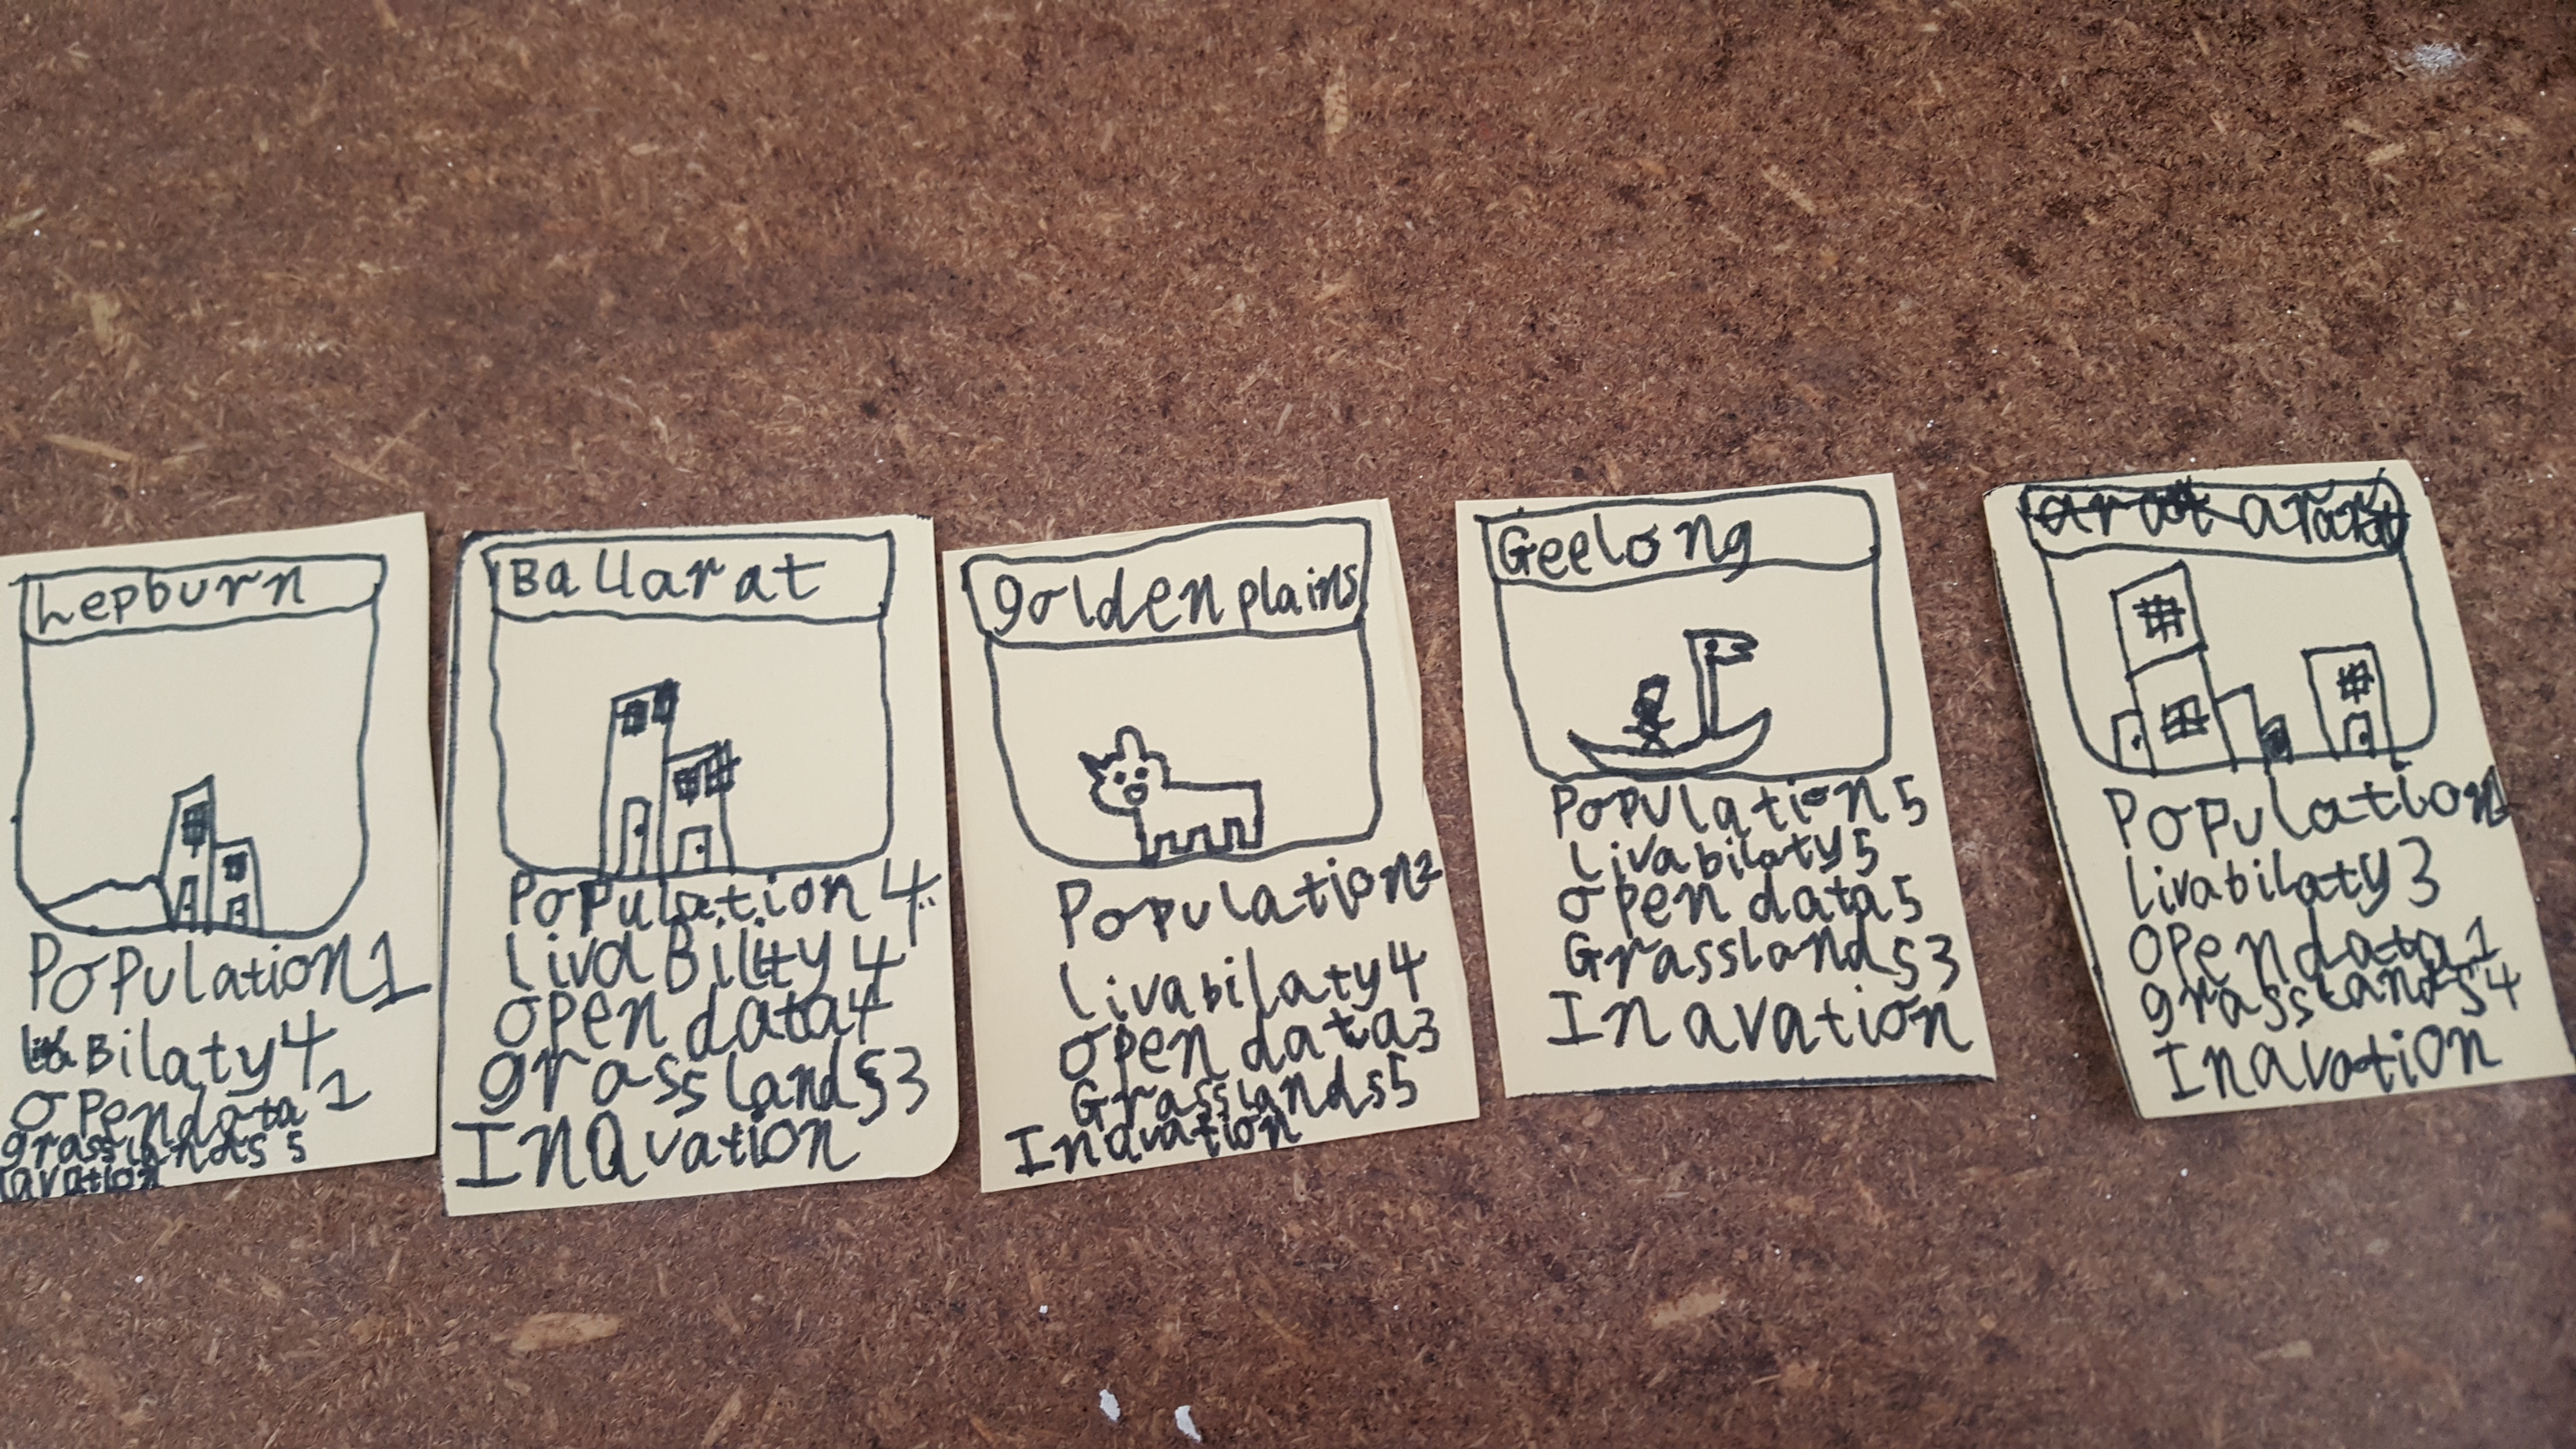 hepburn
Population 1
Bilaty 4
open data 1
grasslands 5
avation
Ballarat
Population 4
LivaBility 4
open data 4
grasslands 3
InQvation
golden plains
Population 2
Livabilaty 4
open data 3
Grasslands 5
Inavation
Geelong
Population 5
Livabilaty 5
open data 5
Grasslands 3
Inavation
Population 1
Livabilaty 3
open data 1
grasslands 4
Inavation